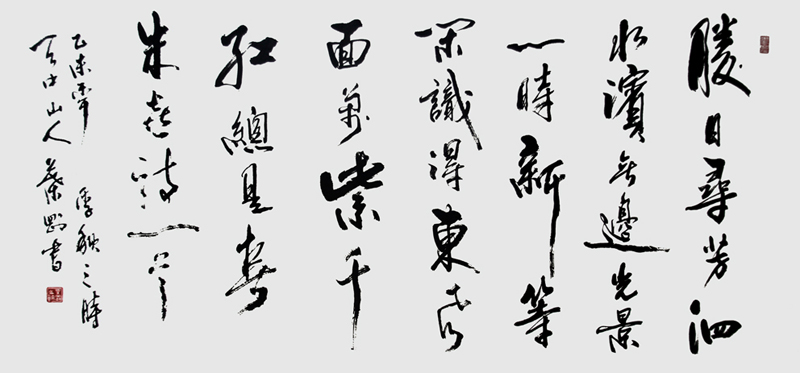 勝日尋芳泗
水濱無邊光景
一時新等
閑識得東風
面萬紫千
紅總是春
朱熹詩一首
乙未年季秋之時
天中山人蔡書